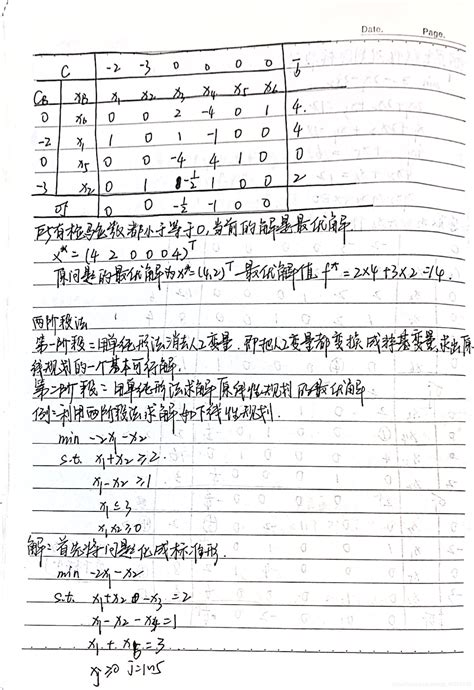 Date. Page.
C -2 -3 0 0 0 0 b̄
C_B x_B x₁ x₂ x₃ x₄ x₅ x₆
0 x₆ 0 0 2 -4 0 1 4
-2 x₁ 1 0 1 -1 0 0 4
0 x₅ 0 0 -4 4 1 0 0
-3 x₂ 0 1 -½ 1 0 0 2
σj 0 0 -½ -1 0 0
所有检验数都小于等于0,当前的解是最优解.
x* = (4 2 0 0 0 4)ᵀ
原问题的最优解为x*=(4,2)ᵀ 最优解值 f*=2×4+3×2=14.
两阶段法
第一阶段:用单纯形法消去人工变量.即把人工变量都变换成非基变量,求出原
线性规划的一个基本可行解.
第二阶段:用单纯形法求解原线性规划的最优解
例:利用两阶段法求解如下线性规划.
min -2x₁-x₂
s.t. x₁+x₂≥2.
x₁-x₂≥1
x₁≤3
x₁,x₂≥0
解:首先将问题化成标准形.
min -2x₁-x₂
s.t. x₁+x₂-x₃=2
x₁-x₂-x₄=1
x₁+x₅=3
xj≥0 j=1~5